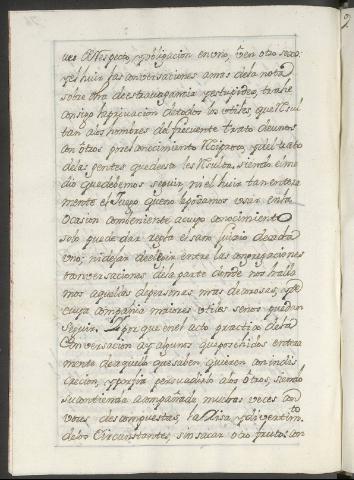 ues el Respecto, y obligacion en vno, v en otro sexo:
y el huir las conversaciones amas de la nota
sobre otra de estravagancia y estupidez, trahe
consigo la privacion de todos los vtiles, que Resul
tan a los hombres del freqüente trato de unos
con otros por el conocimiento Reciproco, y el trato
de las gentes que de esto les Resulta, siendo el me
dio que debemos seguir, ni el huir tan entera
mente el Juego, que no sepamos vsar en la
Ocasion combeniente a cuyo conocimiento
solo puede dar regla el sano juicio de cada
vno; ni dejar de elegir entre las congregaciones
conversaciones de la parte donde nos halla
mos aquellas de personas mas decorosas, y de
cuya compañia maiores vtiles se nos puedan
seguir. Y por que en el acto practico de la
Conversacion ay algunos que posehidos entera
mente de aquello que saben quieren con indis
crecion, y porfia persuadirlo a los otros, siendo
su contienda acompañada muchas veces con
voces descompuestas, la Risa, y divertim.to
de los Circunstantes, sin sacar otro fruto con